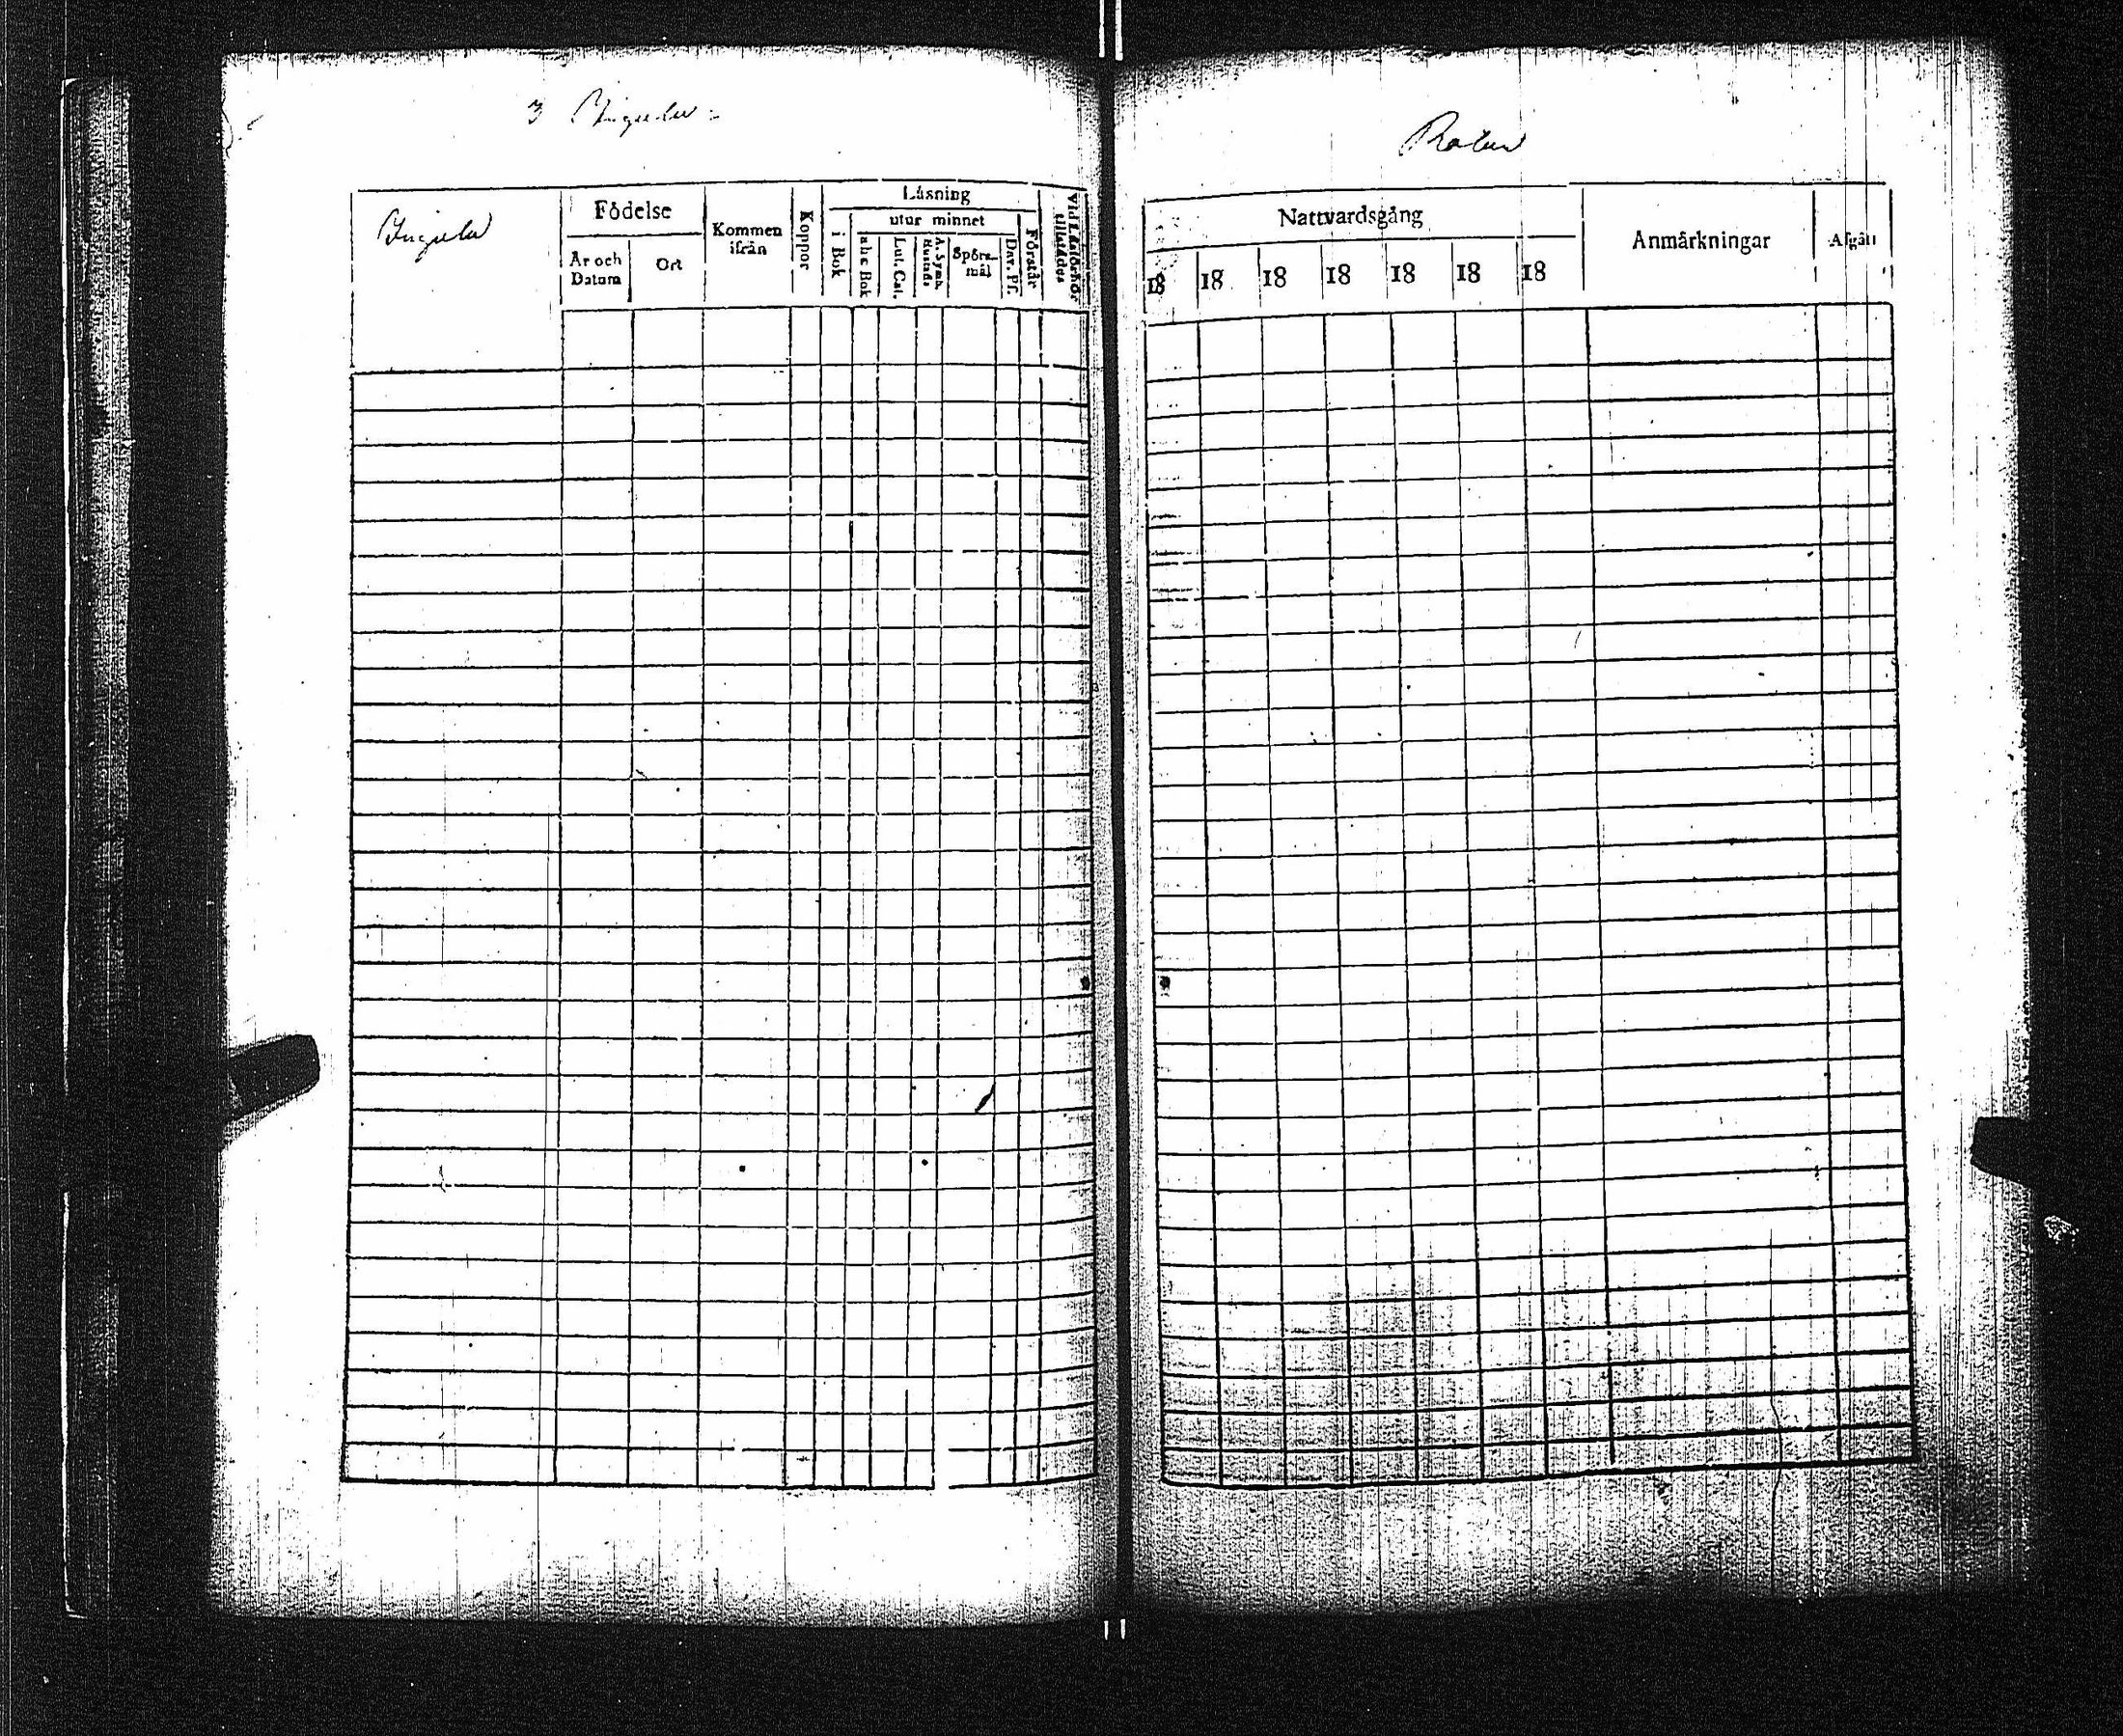 3 Yngula
Yngula
Födelse
År och Datum
Ort
Kommen ifrån
Koppor
Läsning
i Bok
utur minnet
abc Bok
Lut. Cat.
A. Symb. Hustafl.
Spörsmål
Dav. Ps.
Förstår
Vid Läsförhör tillstädes
Nattvardsgång
18 18 18 18 18 18 18
Anmärkningar
Afgått